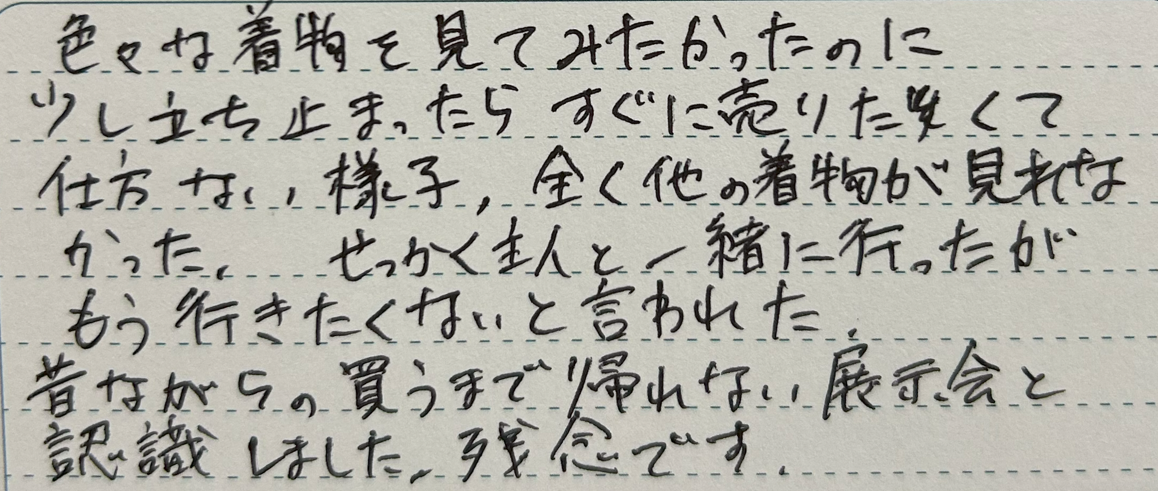 色々な着物を見てみたかったのに
少し立ち止まったらすぐに売りたくて
仕方ない様子、全く他の着物が見れな
かった。 せっかく主人と一緒に行ったが
もう行きたくないと言われた。
昔ながらの買うまで帰れない展示会と
認識しました。残念です。